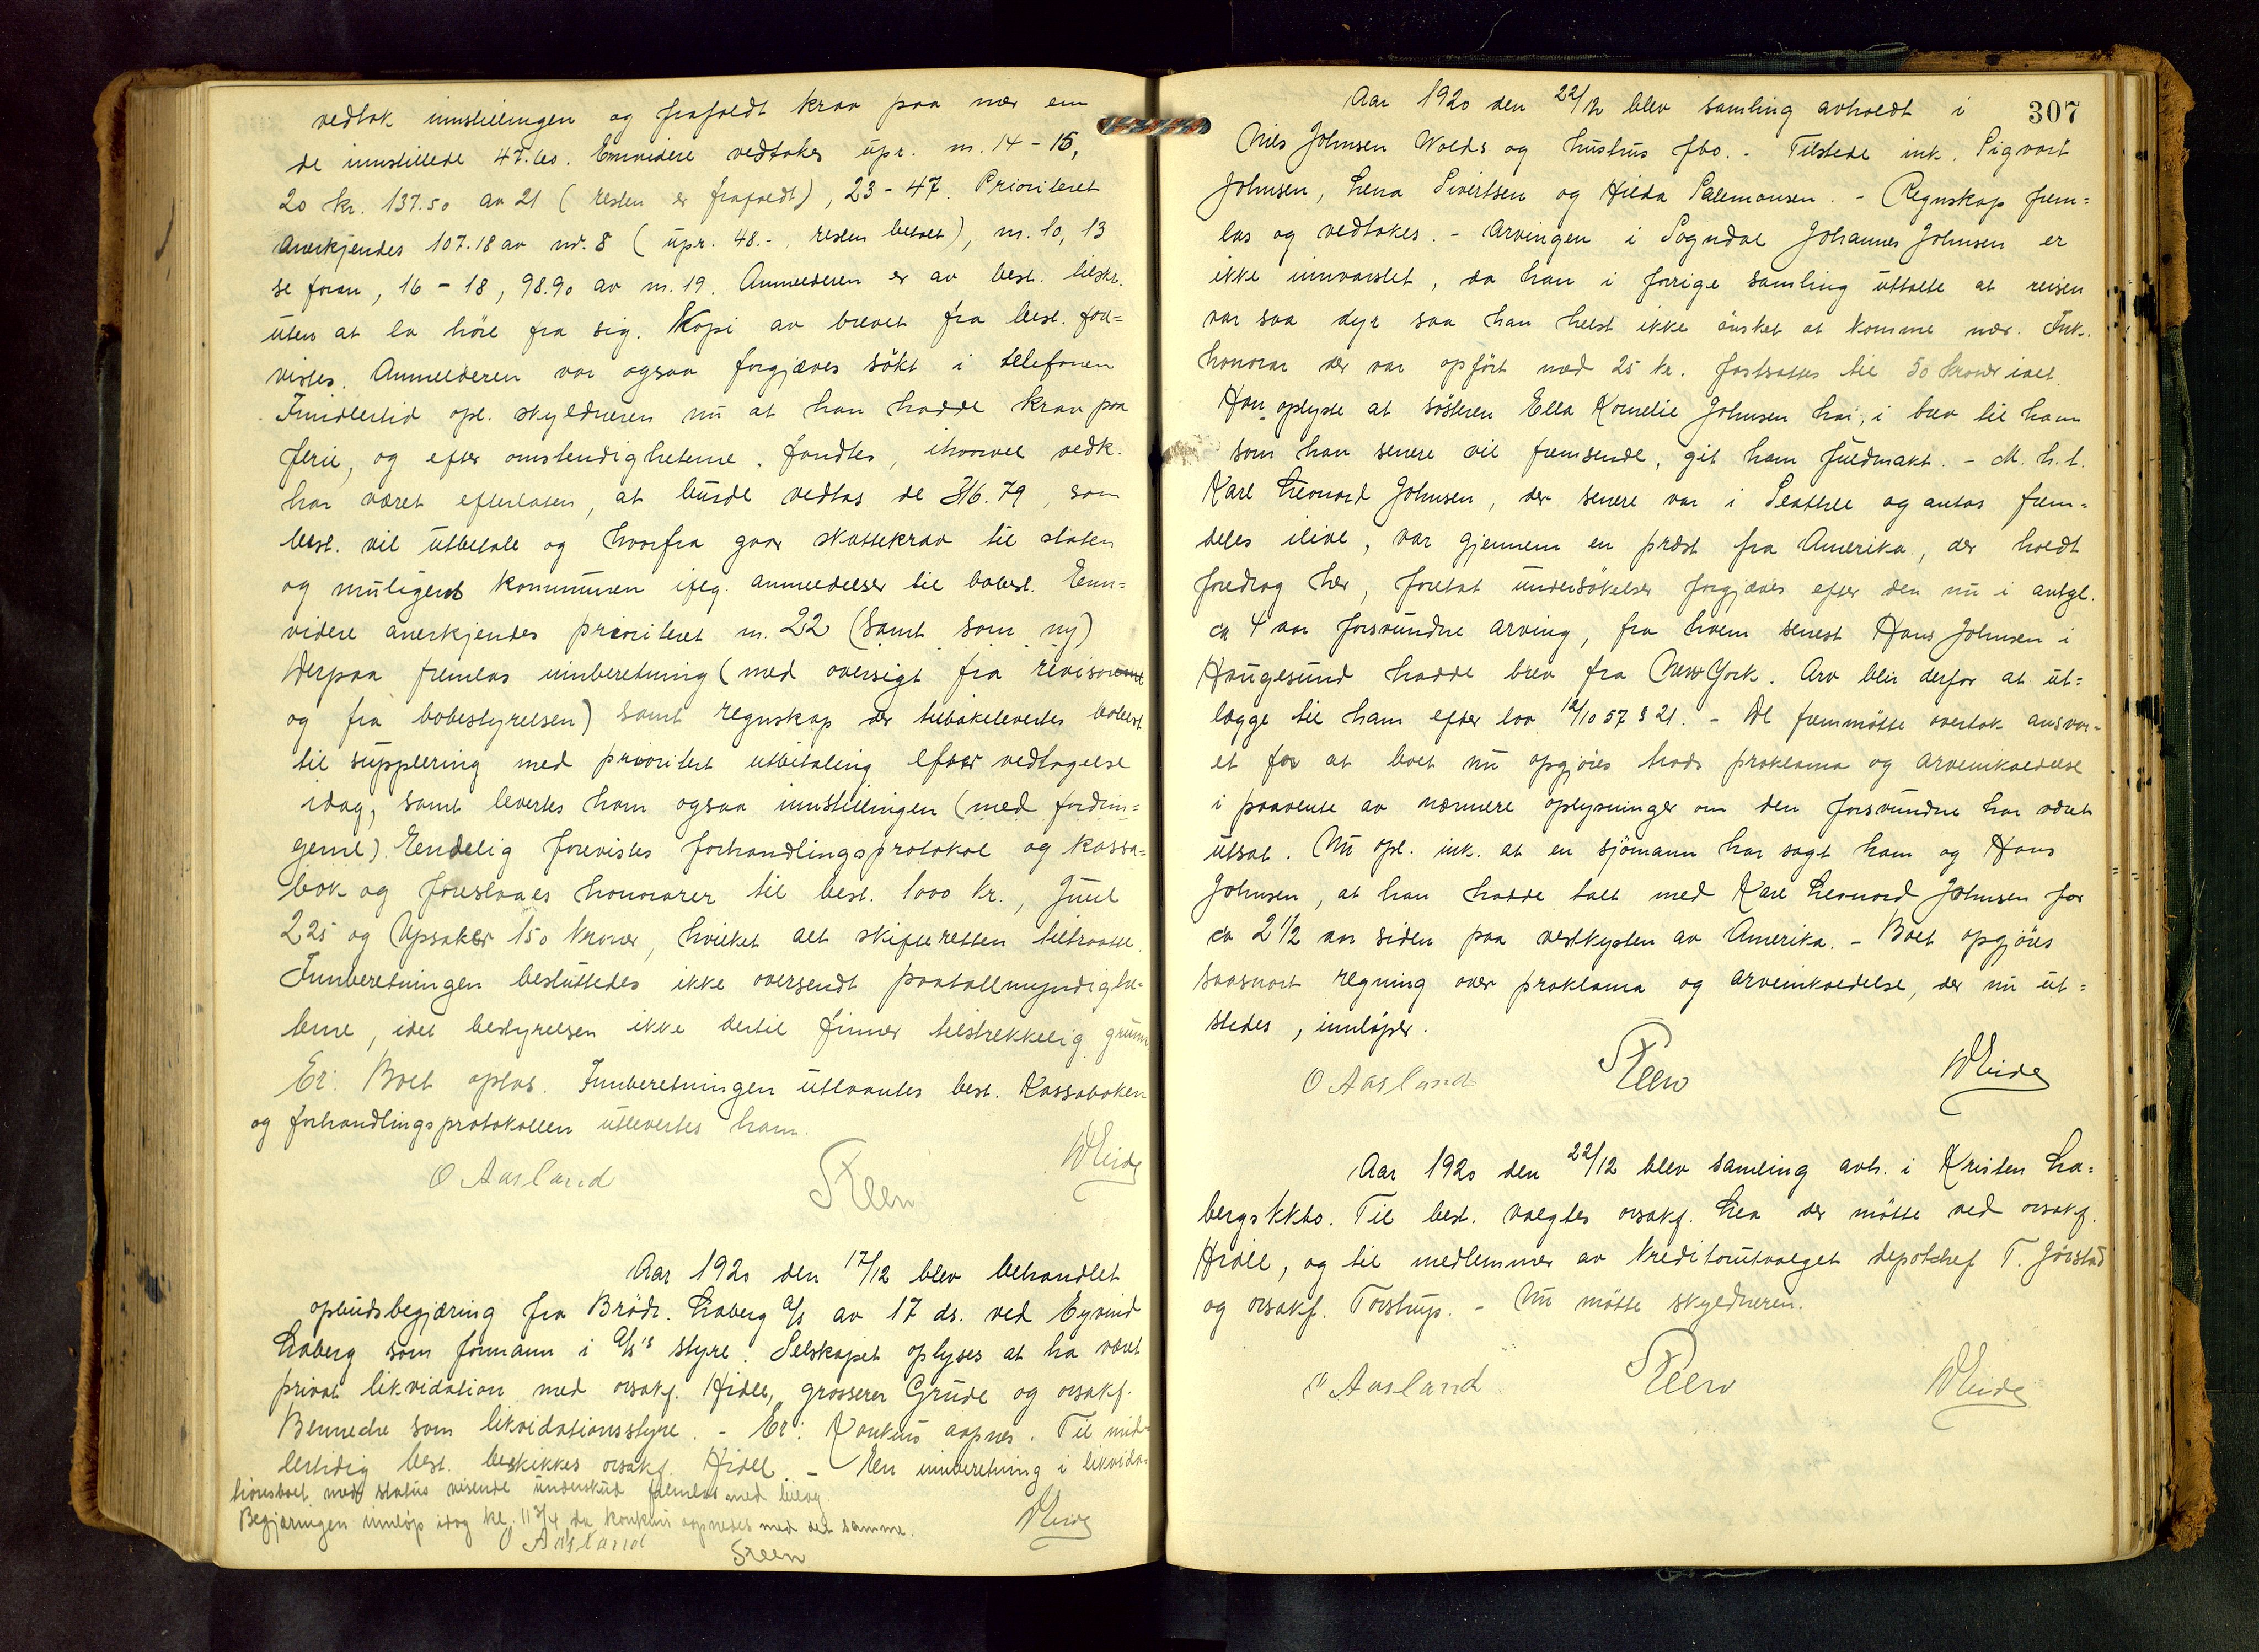 vedtok innstillingen og frafaldt krav paa mer enn
de innstillede 47.60. Ennvidere vedtokes upr. nr. 14 - 15,
20 kr. 137.50 av 21 (resten er frafaldt), 23 - 47. Prioriteret
anerkjendes 107.18 av nr. 8 (upr. 48.-, resten betalt), nr. 10, 13
se foran, 16 - 18, 98.90 av nr. 19. Anmelderen er av best. tilskr.
uten at la höre fra sig. Kopi av brevet fra best. fore=
vistes. Anmelderen var ogsaa forgjæves sökt i telefonen
Imidlertid opl. skyldneren nu at han hadde krav paa
ferie, og efter omstendigheterne fandtes, ihvorvel vedk.
har været efterlaten, at burde vedtas de 316.79, som
best. vil utbetale og hvorfra gaar skattekrav til staten
og muligens kommunen ifølg. anmeldelser til bobest. Enn=
videre anerkjendes prioritert nr. 22 (samt som ny)
Derpaa fremlas innberetning (med oversigt fra revisoren
og fra bobestyrelsen) samt regnskap der tilbakelevertes bobest.
til supplering med prioritert utbetaling efter vedtagelse
idag, samt levertes ham ogsaa innstillingen (med fordrin=
gerne). Endelig forevistes forhandlingsprotokol og kassa=
bok og foreslaaes honorarer til best. 1000 kr., Juul
225 og Upsaker 150 kroner, hvilket alt skifteretten tiltraatte.
Innberetningen besluttedes ikke oversendt paatalemyndighe=
terne, idet bestyrelsen ikke dertil finner tilstrekkelig grunn
Er: Boet optas. Innberetningen utlaantes best. Kassaboken
og forhandlingsprotokollen utlevertes ham.
O Aasland Steen WEide
Aar 1920 den 17/12 blev behandlet
opbudsbegjæring fra Brödr. Laberg A/S av 17 ds. ved Eyvind
Laberg som formann i A/S's styre. Selskapet oplyses at ha været
privat likvidation med orsakf. Hidle, grosserer Grude og orsakf.
Bennedre som likvidationsstyre. - Er: Konkurs aapnes. Til mid=
lertidig best. beskikkes orsakf. Hidle. - En innberetning i likvida=
tionsboet med status visende underskud fremlas med bilag.
Begjæringen innlöp idag kl. 11 3/4, da konkurs aapnedes med det samme.
O Aasland Steen WEide
307
Aar 1920 den 22/12 blev samling avholdt i
Nils Johnsen Wolds og hustrus fbo. - Tilstede ink. Sigvart
Johnsen, Lena Sivertsen og Hilda Salemonsen. - Regnskap frem=
las og vedtokes. - Arvingen i Sogndal Johannes Johnsen er
ikke innvarslet, da han i forrige samling uttalte at reisen
var saa dyr saa han helst ikke önsket at komme mer. Ink.
honorar der var opfört med 25 kr. fastsattes til 50 kroner ialt.
Han oplyste at sösteren Ella Kornelie Johnsen har, i brev til ham
som han senere vil fremsende, git ham fuldmakt. - M. h. t.
Karl Leonard Johnsen, der senere var i Seattle og antas frem=
deles ilive, var gjennem en prest fra Amerika, der holdt
foredrag her, foretat undersökelser forgjæves efter den nu i antgl.
ca 4 aar forsvundne arving, fra hvem senest Hans Johnsen i
Haugesund hadde brev fra New York. Arv blir derfor at ut=
lægge til ham efter lov 12/10 57 § 21. - De fremmötte overtok ansvar=
et for at boet nu opgjöres trods proklama og arveinkaldelse
i paavente av nærmere oplysninger om den forsvundne har været
utsat. Nu opl. ink. at en sjömann har sagt ham og Hans
Johnsen, at han hadde talt med Karl Leonard Johnsen for
ca 2 1/2 aar siden paa vestkysten av Amerika. - Boet opgjöres
saasnart regning over proklama og arveinkaldelse, der nu ut=
stedes, innlöper.
O Aasland Steen WEide
Aar 1920 den 22/12 blev samling avh. i Kristen La=
bergs kkbo. Til best. valgtes orsakf. Lea der mötte ved orsakf.
Hidle, og til medlemmer av kreditorutvalget depotchef T. Jörstad
og orsakf. Torstrup. - Nu mötte skyldneren.
O Aasland Steen WEide